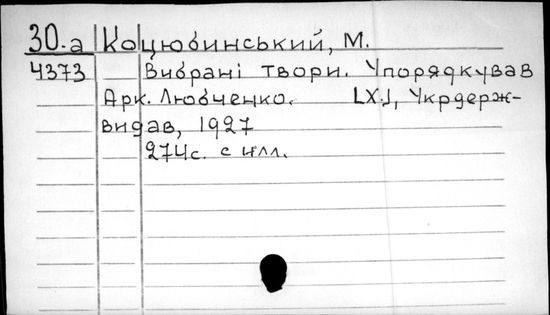 30-а Коцюбинський, М.
4373 Вибрані твори. Упорядкував
Арк. Любченко. [Х.], Укрдерж-
видав, 1927
274с. с илл.